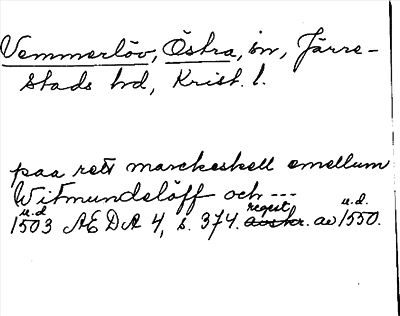 Vemmerlöv, Östra, sn, Järre-
stads hd, Krist. l.
paa rett marckeskell emellum
Witmundslöff och ---
u.d. regist u.d.
1503 AEDA 4, s. 374. avskr. av 1550.